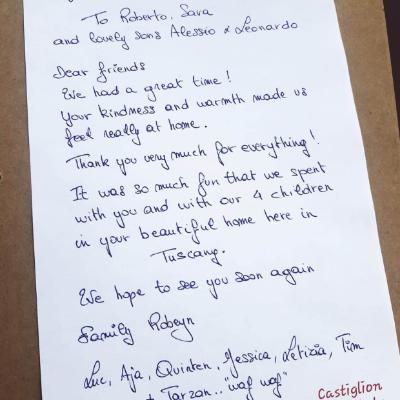 To Roberto, Sara
and lovely sons Alessio & Leonardo
Dear friends
We had a great time!
Your kindness and warmth made us
feel really at home.
Thank you very much for everything!
It was so much fun that we spent
with you and with our 4 children
in your beautiful home here in
Tuscany.
We hope to see you soon again
Family Robeyn
Luc, Aja, Quinten, Jessica, Letizia, Tim
+ Tarzan.. "waf waf"
Castiglion